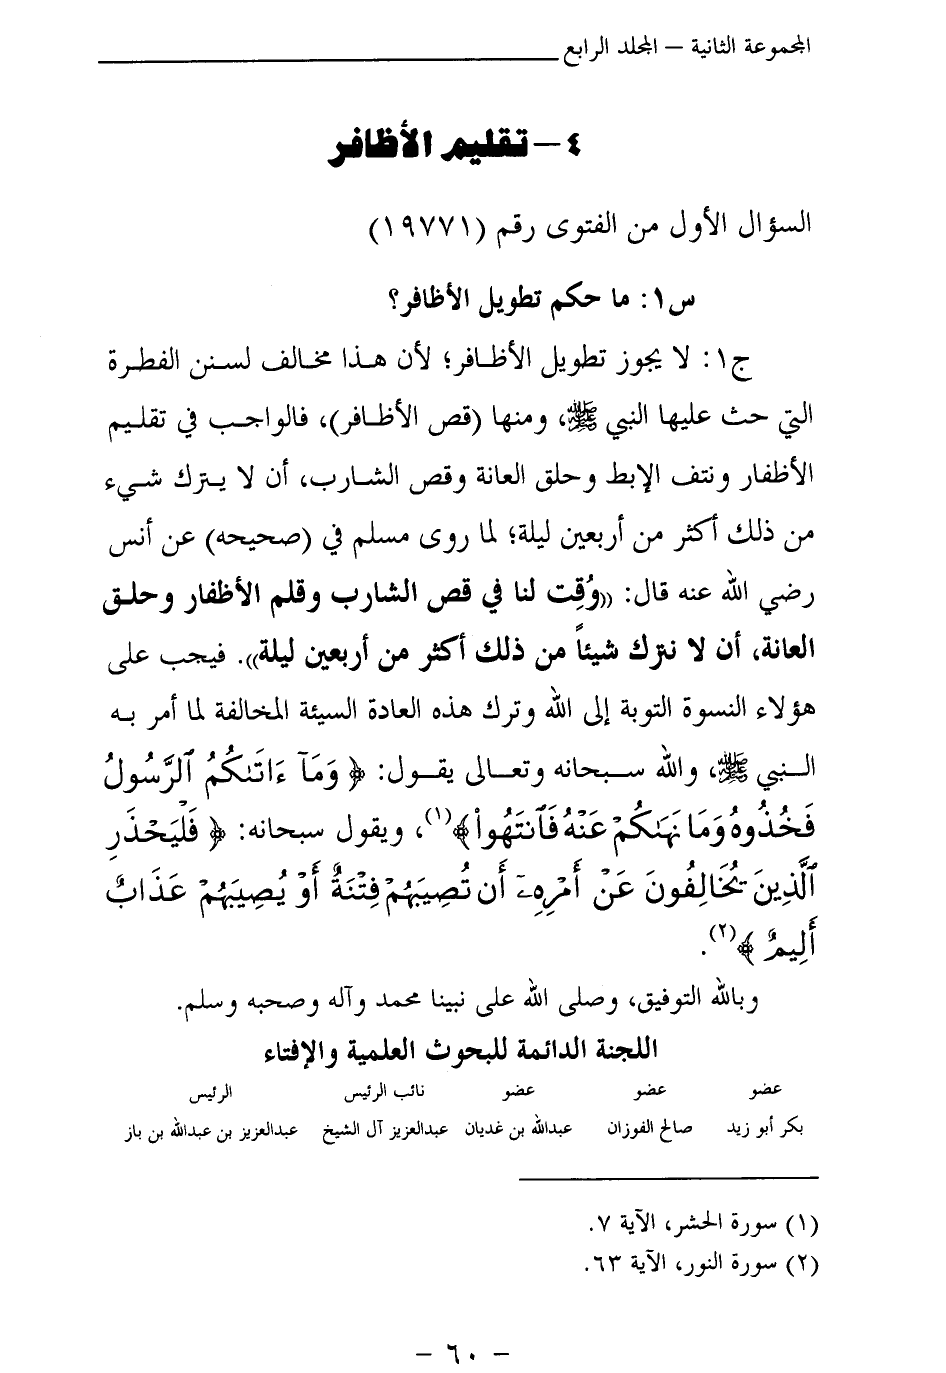 المجموعة الثانية – المجلد الرابع
٤ – تقليم الأظافر
السؤال الأول من الفتوى رقم (١٩٧٧١)
س١: ما حكم تطويل الأظافر؟
ج١: لا يجوز تطويل الأظافر؛ لأن هذا مخالف لسنن الفطرة
التي حث عليها النبي ﷺ، ومنها (قص الأظافر)، فالواجب في تقليم
الأظفار ونتف الإبط وحلق العانة وقص الشارب، أن لا يترك شيء
من ذلك أكثر من أربعين ليلة؛ لما روى مسلم في (صحيحه) عن أنس
رضي الله عنه قال: ((وُقِت لنا في قص الشارب وقلم الأظفار وحلق
العانة، أن لا نترك شيئاً من ذلك أكثر من أربعين ليلة)). فيجب على
هؤلاء النسوة التوبة إلى الله وترك هذه العادة السيئة المخالفة لما أمر به
النبي ﷺ، والله سبحانه وتعالى يقول: ﴿ وَمَآ ءَاتَىٰكُمُ ٱلرَّسُولُ
فَخُذُوهُ وَمَا نَهَىٰكُمْ عَنْهُ فَٱنتَهُوا۟ ﴾(١)، ويقول سبحانه: ﴿ فَلْيَحْذَرِ
ٱلَّذِينَ يُخَالِفُونَ عَنْ أَمْرِهِۦٓ أَن تُصِيبَهُمْ فِتْنَةٌ أَوْ يُصِيبَهُمْ عَذَابٌ
أَلِيمٌ ﴾(٢).
وبالله التوفيق، وصلى الله على نبينا محمد وآله وصحبه وسلم.
اللجنة الدائمة للبحوث العلمية والإفتاء
عضو عضو عضو نائب الرئيس الرئيس
بكر أبو زيد صالح الفوزان عبدالله بن غديان عبدالعزيز آل الشيخ عبدالعزيز بن عبدالله بن باز
(١) سورة الحشر، الآية ٧.
(٢) سورة النور، الآية ٦٣.
– ٦٠ –